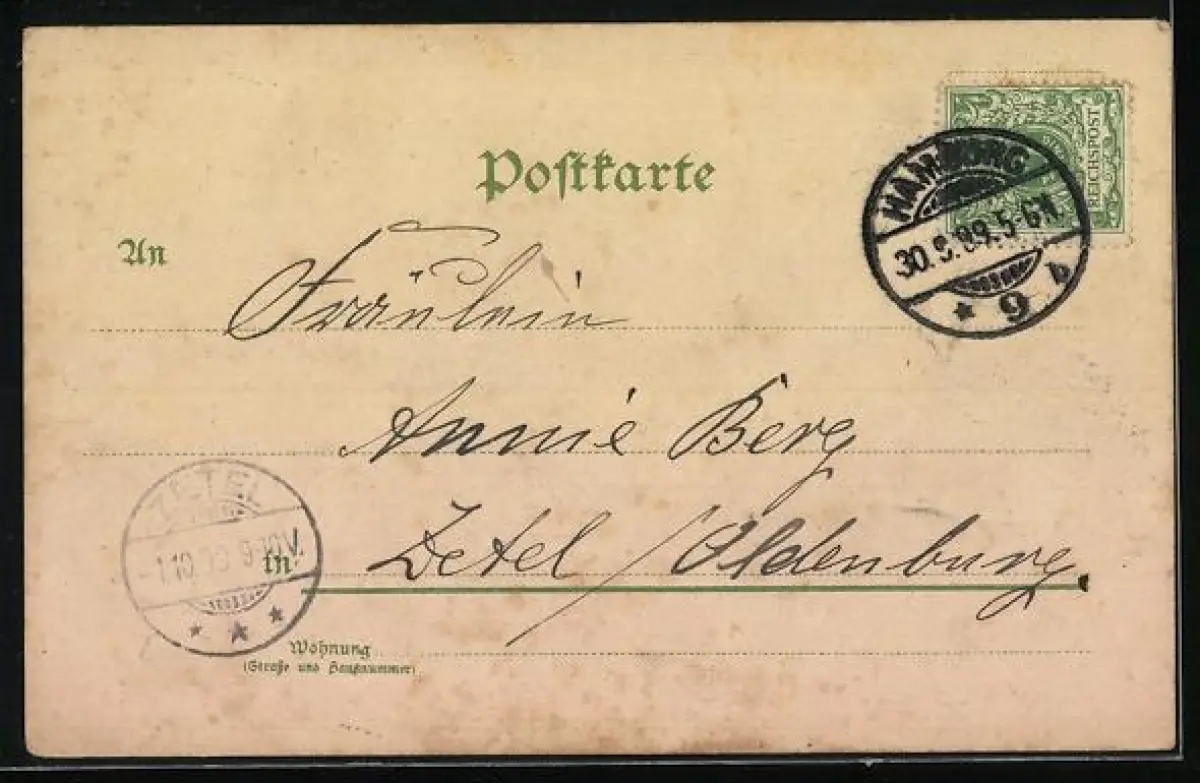 Postkarte
REICHSPOST
HAMBURG
30.9.99.5-6N.
* 9 b
An
Fräulein
Annie Berg
ZETEL
1.10. 9-10V.
in
Zetel / Oldenburg.
Wohnung
(Straße und Hausnummer)